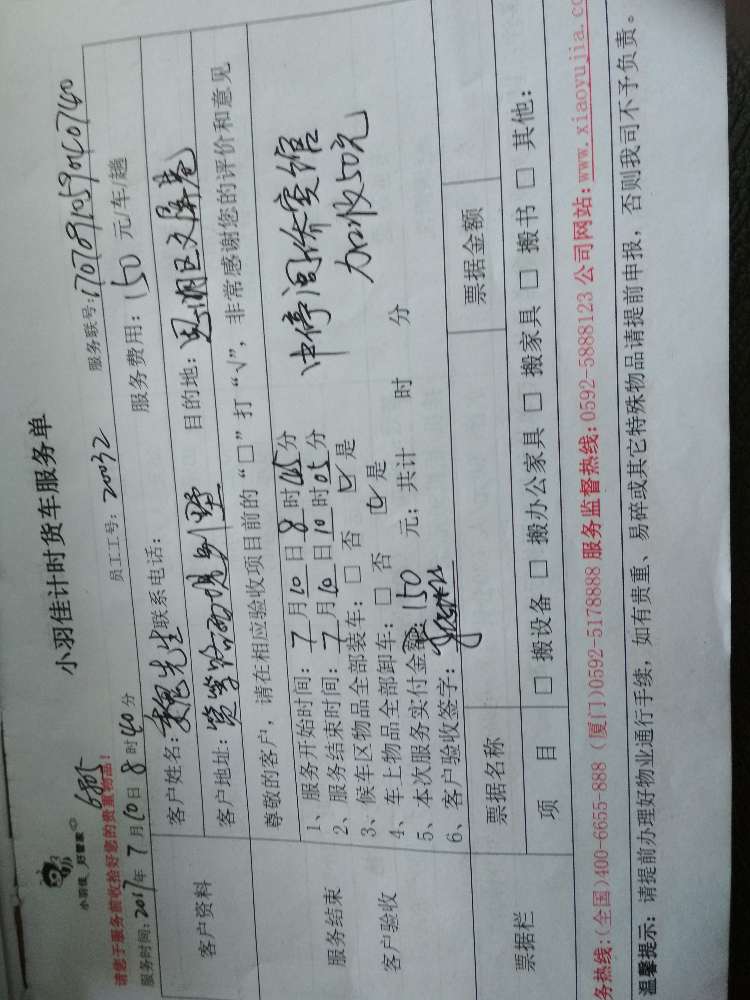 小羽佳计时货车服务单
小羽佳 好管家
6805
请您于服务前收拾好您的贵重物品!
服务时间: 2017年 7月10日 8时40分 员工工号: 20032 服务联号:
客户资料
客户姓名: 先生 联系电话: 服务费用: 150 元/车/趟
客户地址: 别墅 目的地: 思明区文屏巷
尊敬的客户, 请在相应验收项目前的“□”打“√”, 非常感谢您的评价和意见
服务结束
客户验收
1、服务开始时间: 7月10日8时45分
2、服务结束时间: 7月10日10时05分
3、候车区物品全部装车: □ 否 ☑ 是
4、车上物品全部卸车: □ 否 ☑ 是
5、本次服务实付金额: 150 元; 共计 时 分
6、客户验收签字:
中停闽侨宾馆
加收50元
票据栏
票据名称 票据金额
项 目 □ 搬设备 □ 搬办公家具 □ 搬家具 □ 搬书 □ 其他:
务热线:(全国)400-6655-888 (厦门)0592-5178888 服务监督热线:0592-5888123 公司网站:www.xiaoyujia.co
温馨提示: 请提前办理好物业通行手续, 如有贵重、易碎或其它特殊物品请提前申报, 否则我司不予负责。